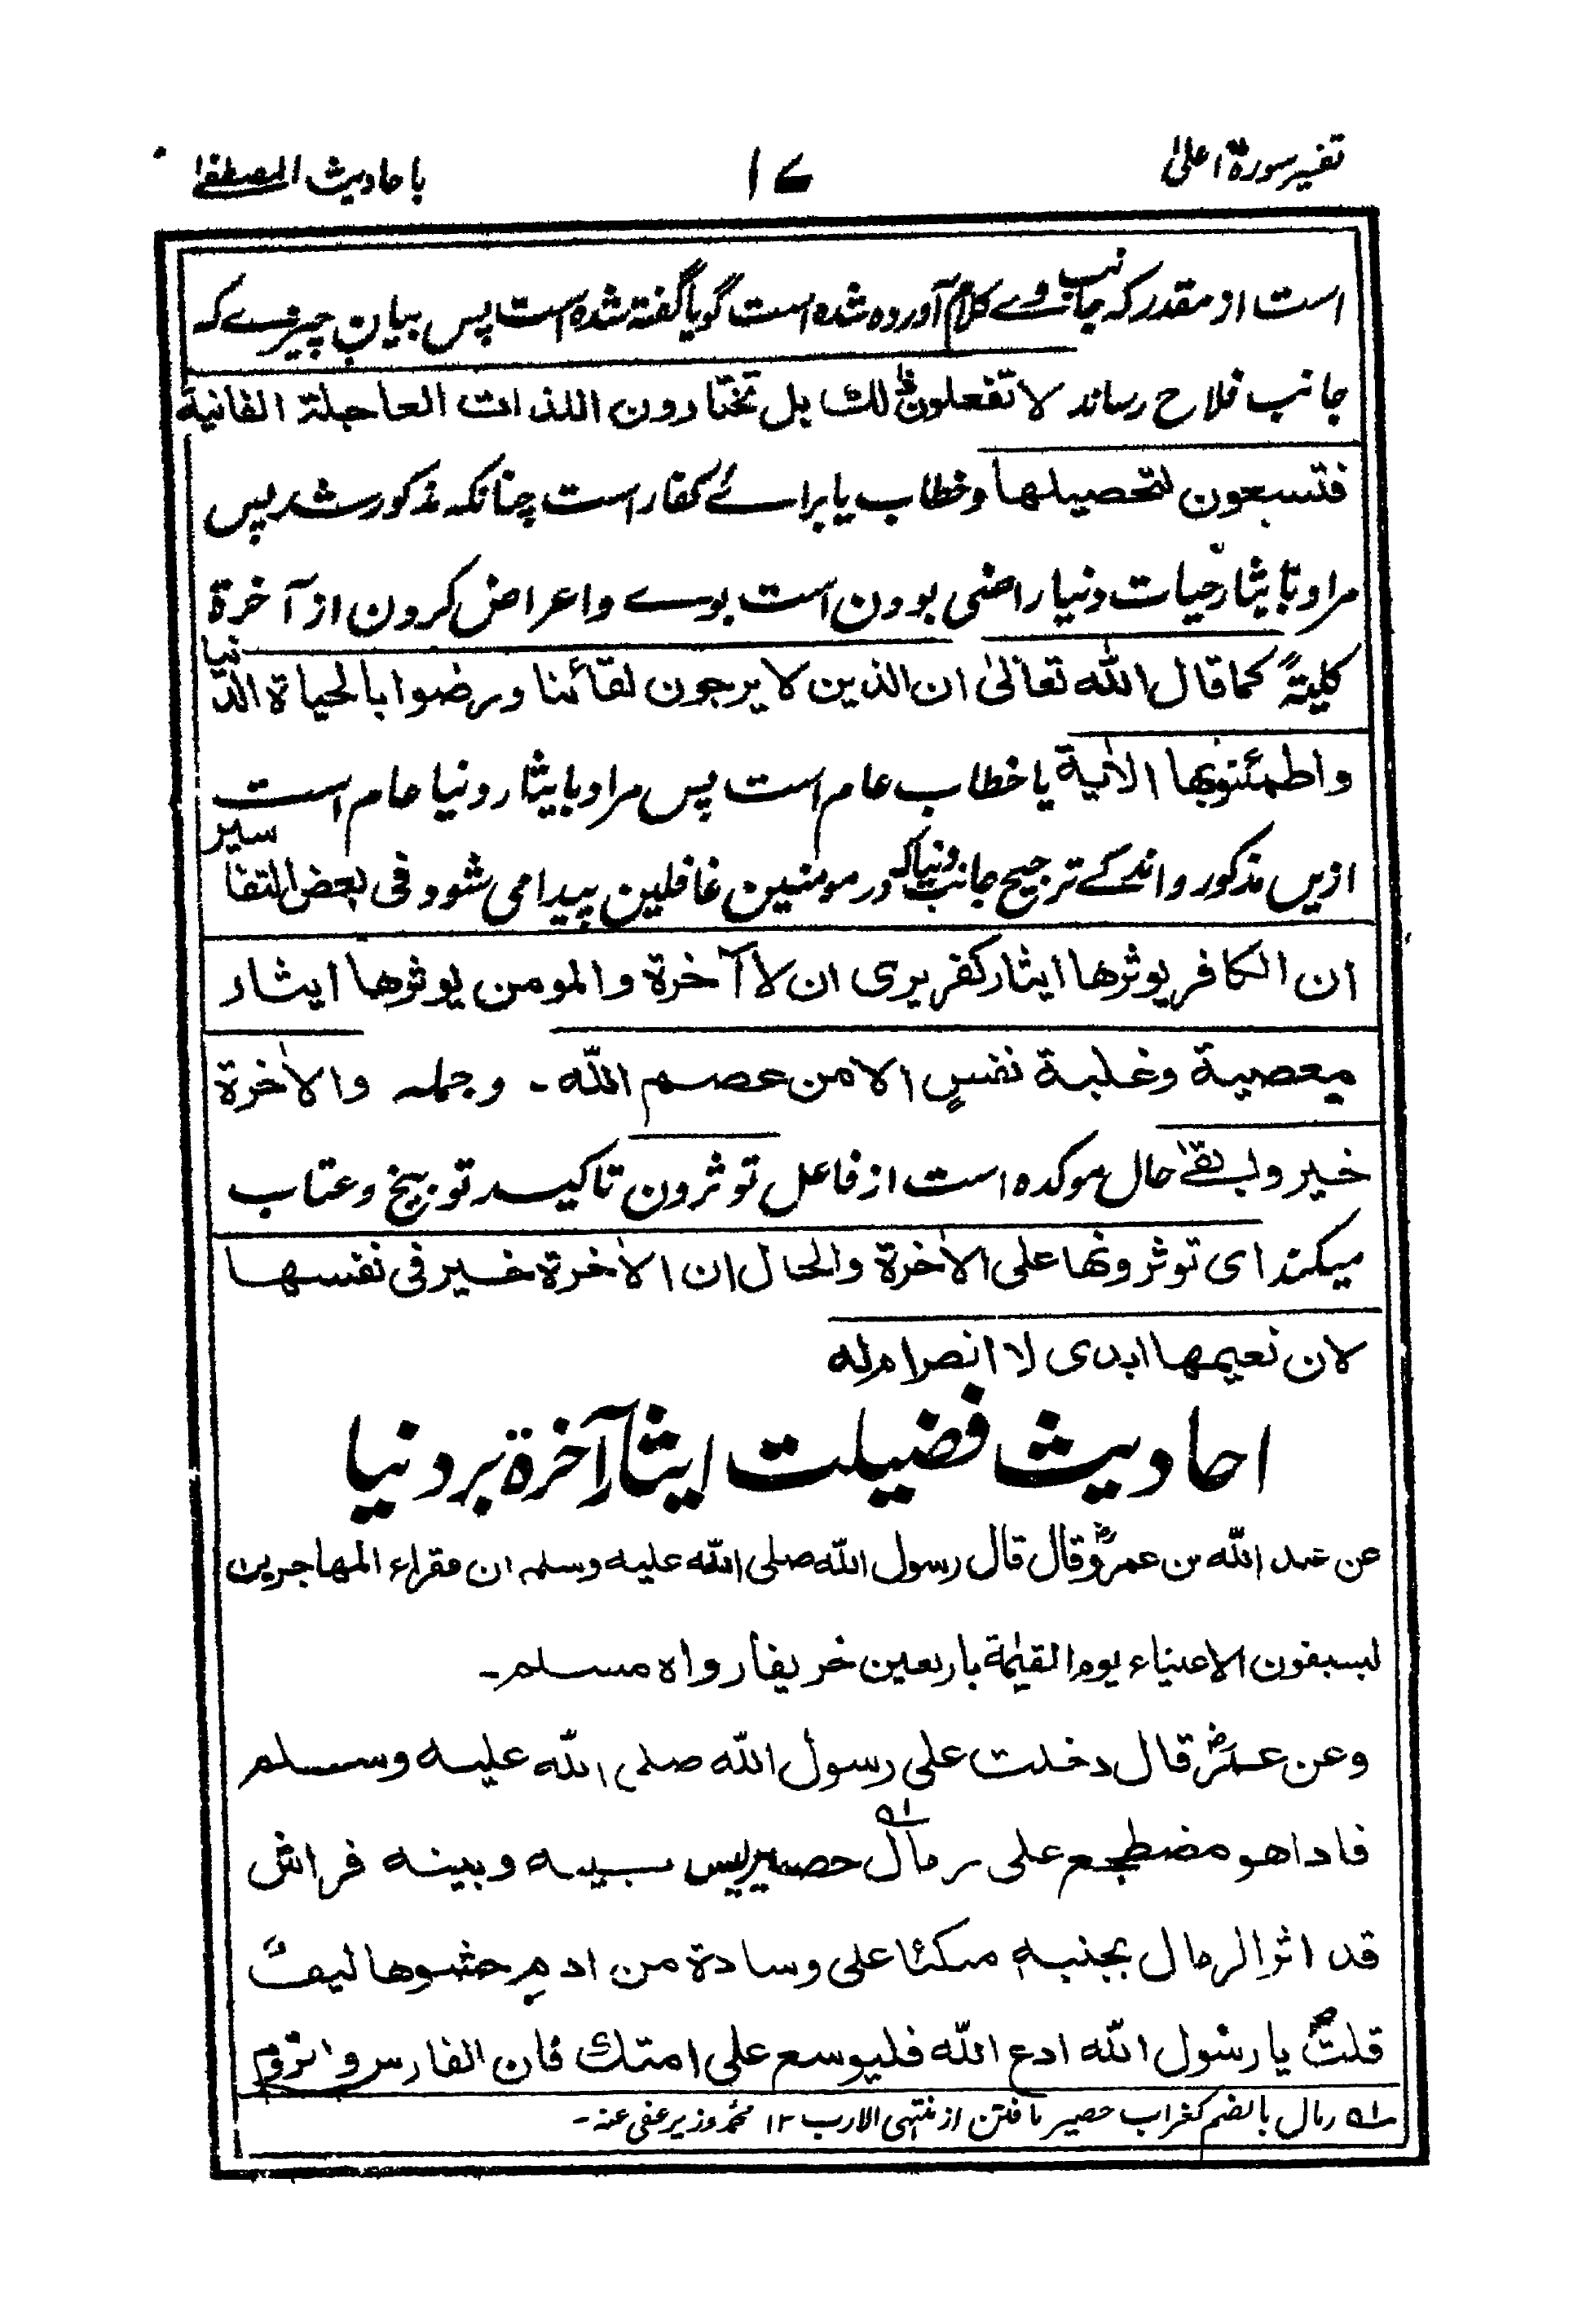 تفسیر سورۃ اعلیٰ
۱۷
باحادیث المصطفےٰ
است از مقدر کہ جانب وے کلام آوردہ شدہ است گویا گفتہ شدہ است پس بیان چیزے کہ
جانب فلاح رساند لا تفعلون ذلك بل تختارون اللذات العاجلة الفانية
فتسعون لتحصيلها و خطاب یا برائے کفار است چنانکہ مذکور شد پس
مراد بایثار حیات دنیا راضی بودن است بوے و اعراض کردن از آخرۃ
کلیتہً كما قال الله تعالىٰ ان الذين لا يرجون لقائنا ورضوا بالحياة الدنيا
واطمئنوا بها الاٰية یا خطاب عام است پس مراد بایثار دنیا عام است
ازیں مذکور و اندکے ترجیح جانب دنیا کہ در مومنین غافلین پیدا می شود فی بعض التفاسير
ان الكافر يوثرها ايثار كفر يرى ان لا آخرة والمومن يوثرها ايثار
معصية وغلبة نفسٍ الا من عصم الله ۔ وجملہ والاٰخرة
خير وابقىٰ حال موکدہ است از فاعل توثرون تاکید توبیخ و عتاب
میکند اى توثرونها على الاٰخرة والحال ان الاٰخرة خير فى نفسها
لان نعيمها ابدى لا انصرام له
احادیث فضیلت ایثار آخرۃ بر دنیا
عن عبد الله بن عمرو قال قال رسول الله صلى الله عليه وسلم ان فقراء المهاجرين
يسبقون الاغنياء يوم القيٰمة باربعين خريفا رواه مسلم۔
وعن عمر قال دخلت على رسول الله صلى الله عليه وسلم
فاذا هو مضطجع على رمال حصير ليس بينه وبينه فراش
قد اثر الرمال بجنبه متكئا على وسادة من ادمٍ حشوها ليف
قلت يا رسول الله ادع الله فليوسع على امتك فان الفارس والروم
رمال بالضم کغراب حصیر بافتن از منتہی الارب ۱۲ محمد وزیر عفی عنہ۔